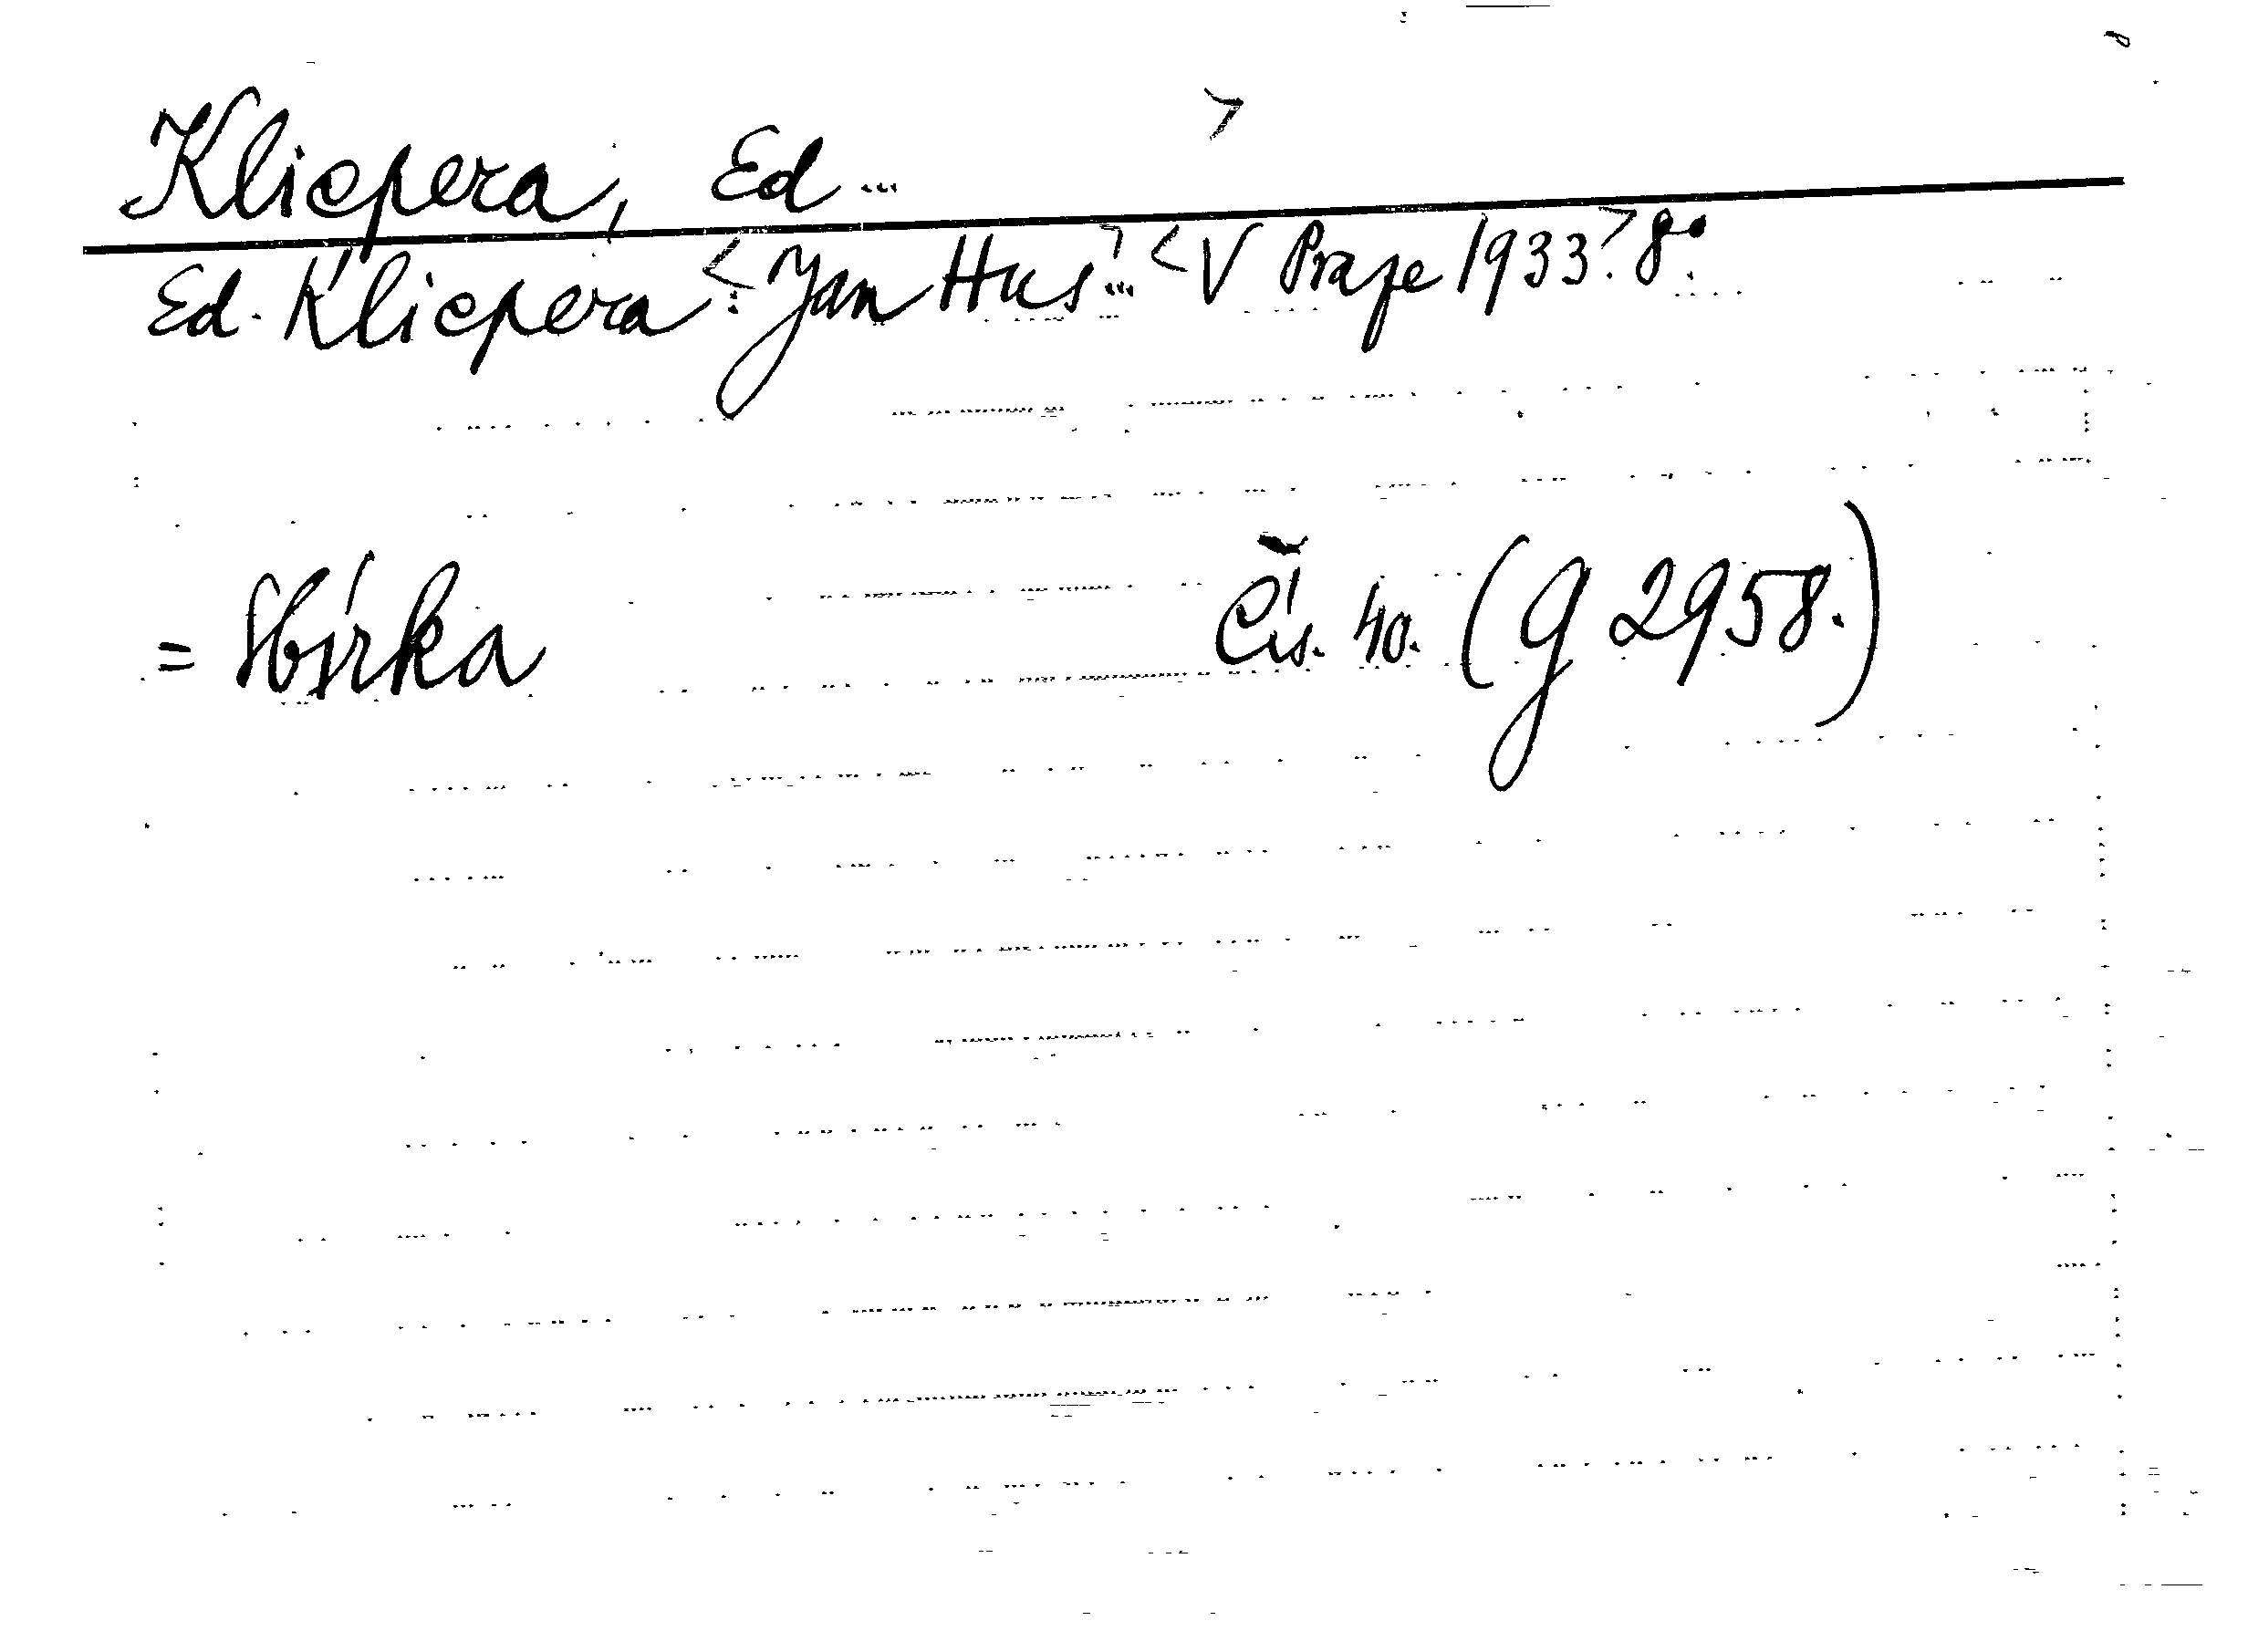 Klicpera, Ed...
Ed. Klicpera: <Jan Hus...> <V Praze 1933.> 8°.
= Sbírka Čís. 40. (g 2958.)